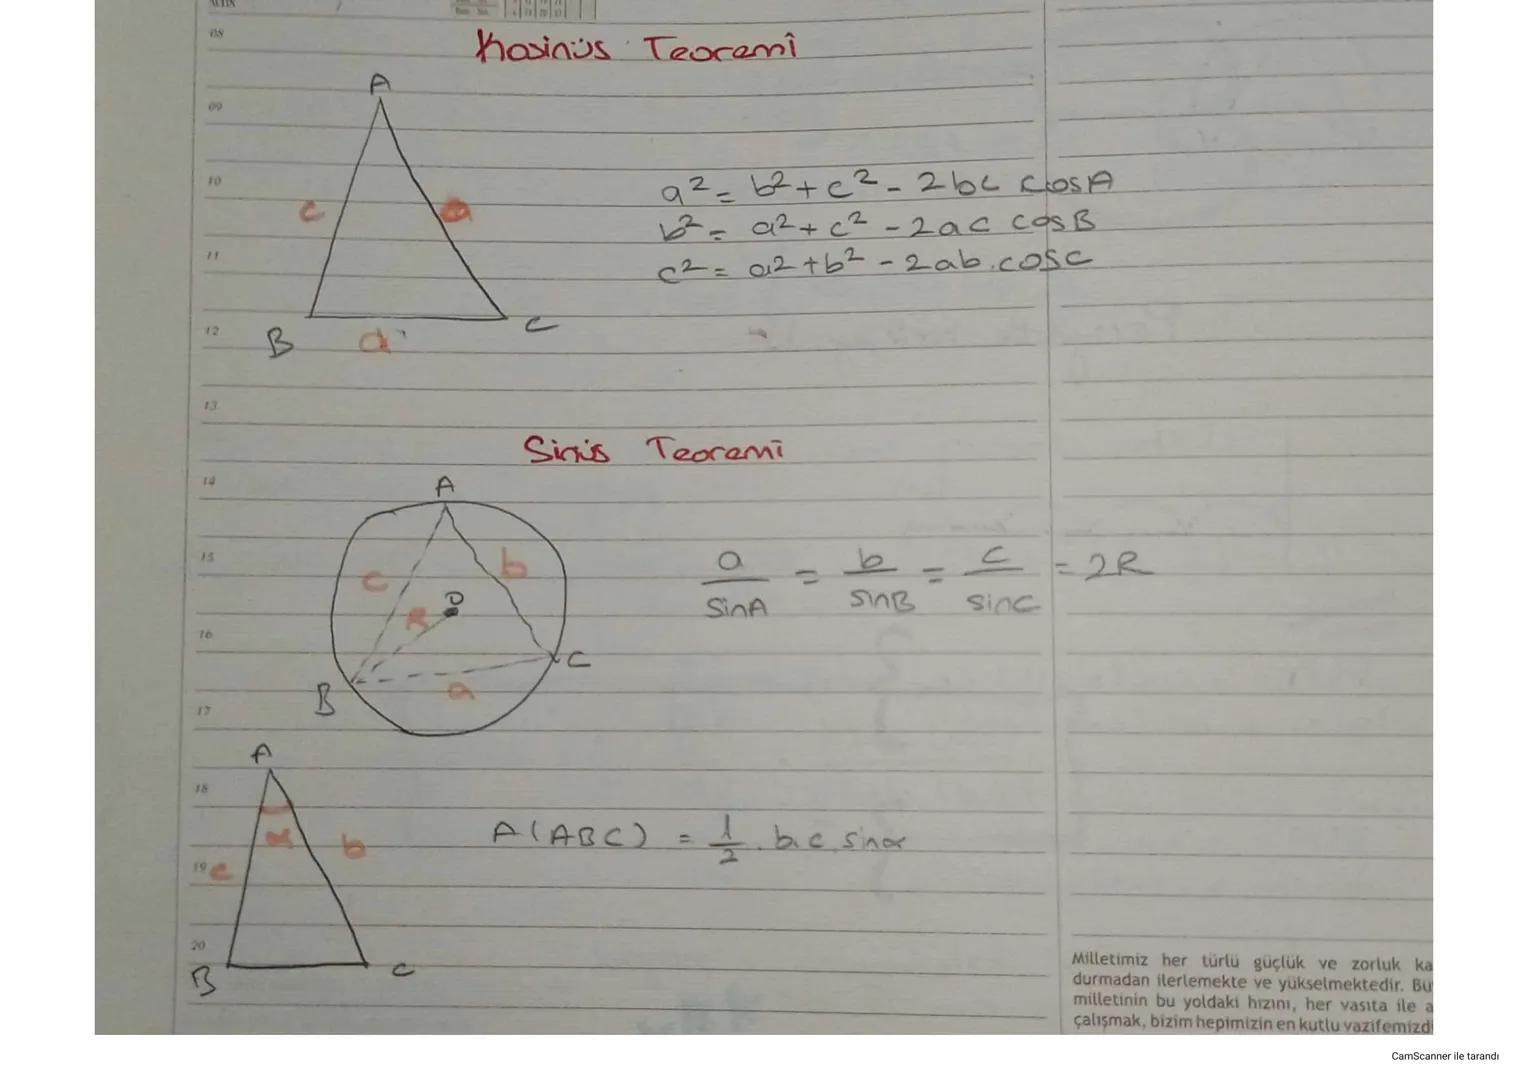 08
Kosinüs Teoremi
A
09
10
a² = b² + c² - 2bc cosA
c
a
b² = a² + c² - 2ac cosB
11
c² = a² + b² - 2ab.cosC
12
B
a
C
13
Sinüs Teoremi
14
A
15
c
b
a/sinA = b/sinB = c/sinC = 2R
R
O
16
C
B
a
17
A
18
α
b
A(ABC) = 1/2 . b.c sinα
19
c
20
B
C
Milletimiz her türlü güçlük ve zorluk ka
durmadan ilerlemekte ve yükselmektedir. Bu
milletinin bu yoldaki hızını, her vasıta ile a
çalışmak, bizim hepimizin en kutlu vazifemizd
CamScanner ile tarandı